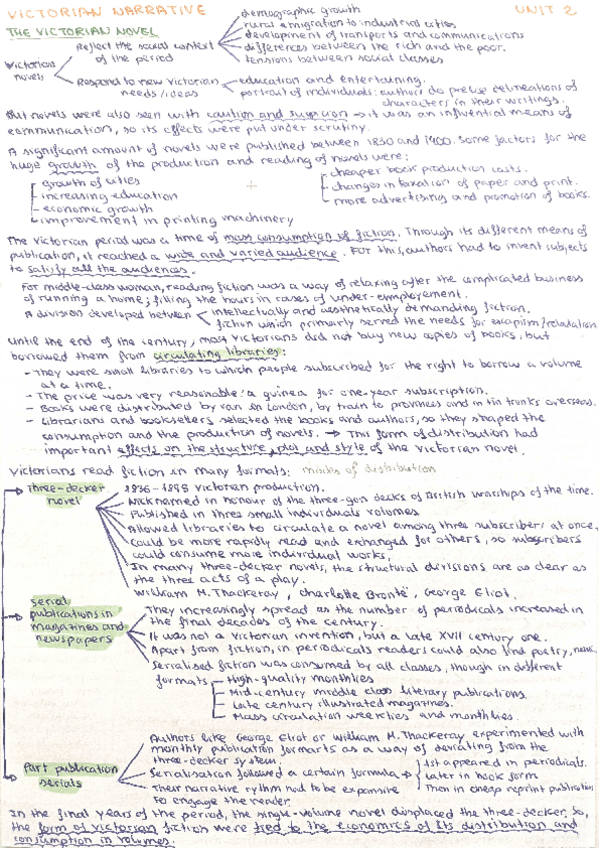 VICTORIAN NARRATIVE
UNIT 2
THE VICTORIAN NOVEL
Victorian novels
Reflect the social context of the period
demographic growth
rural emigration to industrial cities
development of transports and communications
differences between the rich and the poor.
tensions between social classes
Respond to new Victorian needs/ideas
education and entertaining.
portrait of individuals: authors do precise delineations of characters in their writings.
But novels were also seen with caution and suspicion → it was an influential means of
communication, so its effects were put under scrutiny.
A significant amount of novels were published between 1830 and 1900. Some factors for the
huge growth of the production and reading of novels were:
Growth of cities
increasing education
economic growth
improvement in printing machinery
cheaper book production costs.
changes in taxation of paper and print.
more advertising and promotion of books.
The Victorian period was a time of mass consumption of fiction. Through its different means of
publication, it reached a wide and varied audience. For this, authors had to invent subjects
to satisfy all the audiences.
For middle-class woman, reading fiction was a way of relaxing after the complicated business
of running a home; filling the hours in cases of under-employement.
A division developed between
intellectually and aesthetically demanding fiction.
fiction which primarly served the needs for escapism/relaxation
Until the end of the century, most Victorians did not buy new copies of books, but
borrowed them from circulating libraries:
- They were small libraries to which people subscribed for the right to borrow a volume
at a time.
- The price was very reasonable: a guinea for one-year subscription.
- Books were distributed by van in London, by train to provinces and in tin trunks overseas.
- Librarians and booksellers selected the books and authors, so they shaped the
consumption and the production of novels. → This form of distribution had
important effects on the structure, plot and style of the Victorian novel.
Victorians read fiction in many formats: modes of distribution
Three-decker novel
1836-1898 Victorian production.
Nicknamed in honour of the three-gun decks of British warships of the time.
Published in three small individuals volumes
Allowed libraries to circulate a novel among three subscribers at once.
Could be more rapidly read and exchanged for others, so subscribers
could consume more individual works,
In many three-decker novels, the structural divisions are as clear as
the three acts of a play.
William M. Thackeray, Charlotte Brontë, George Eliot.
Serial publications in magazines and newspapers
They increasingly spread as the number of periodicals increased in
the final decades of the century.
It was not a Victorian invention, but a late XVII century one.
Apart from fiction, in periodicals readers could also find poetry,
Serialised fiction was consumed by all classes, though in different
formats
High-quality monthlies
Mid-century middle class literary publications.
Late century illustrated magazines.
Mass circulation weeklies and monthlies.
Part publication serials
Authors like George Eliot or William M. Thackeray experimented with
monthly publication formarts as a way of deviating from the
three-decker system.
Serialisation followed a certain formula
1st appeared in periodicals.
Later in book form
Then in cheap reprint publication
Their narrative rythm had to be expansive
to engage the reader
In the final years of the period, the single-volume novel displaced the three-decker, so,
the form of Victorian fiction were tied to the economics of its distribution and
consumption in volumes.